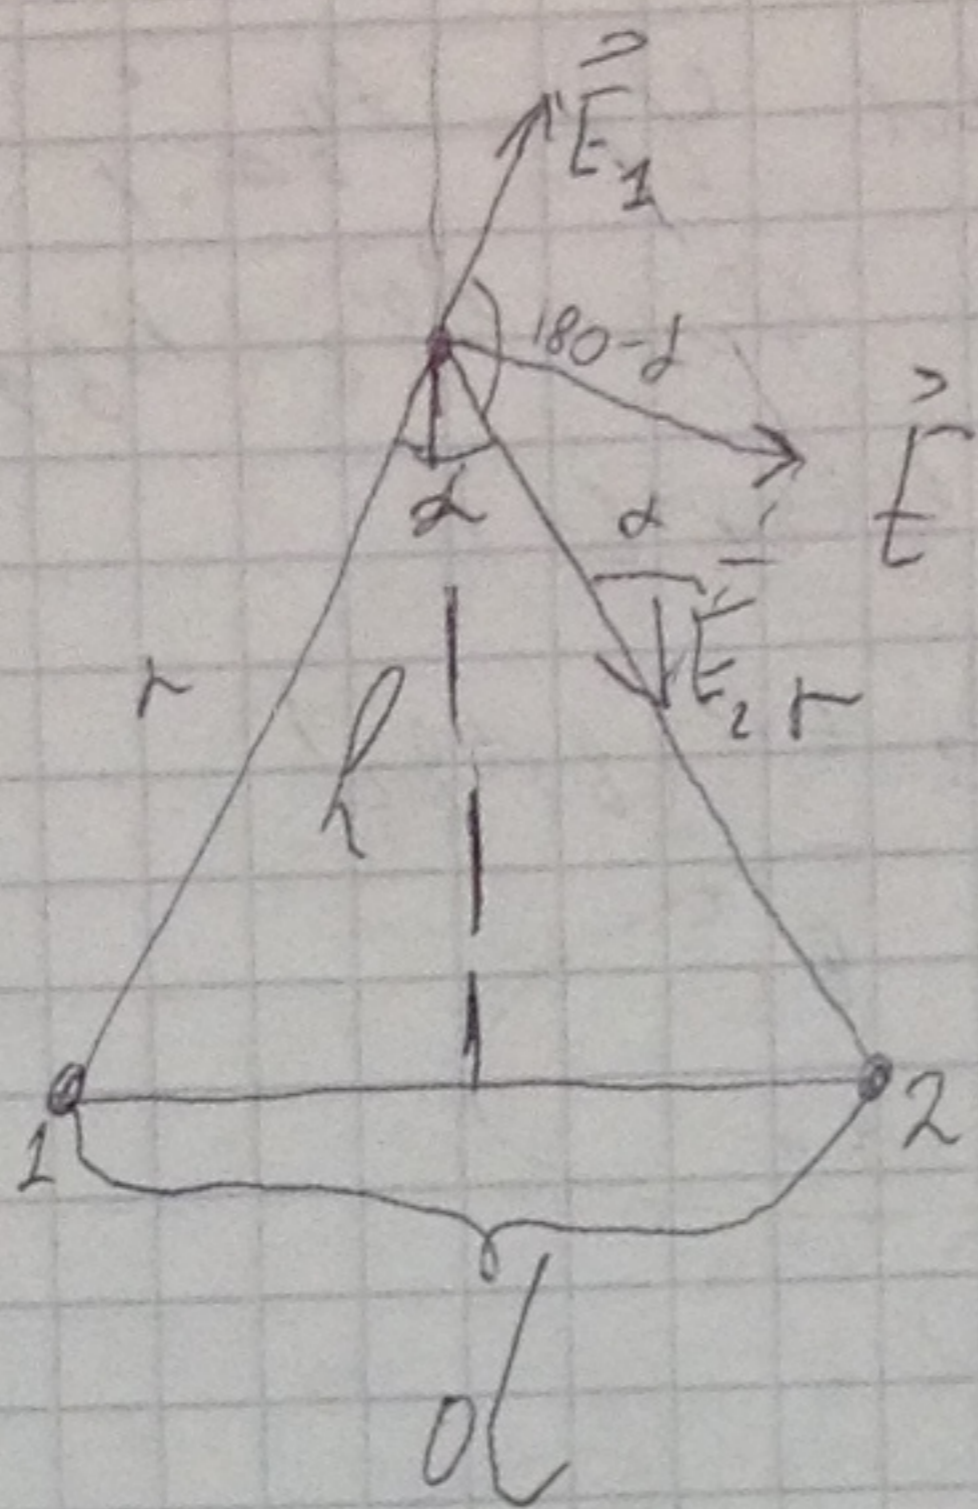 E₁
180-α
E
α
α
E₂
r
r
h
1
2
d